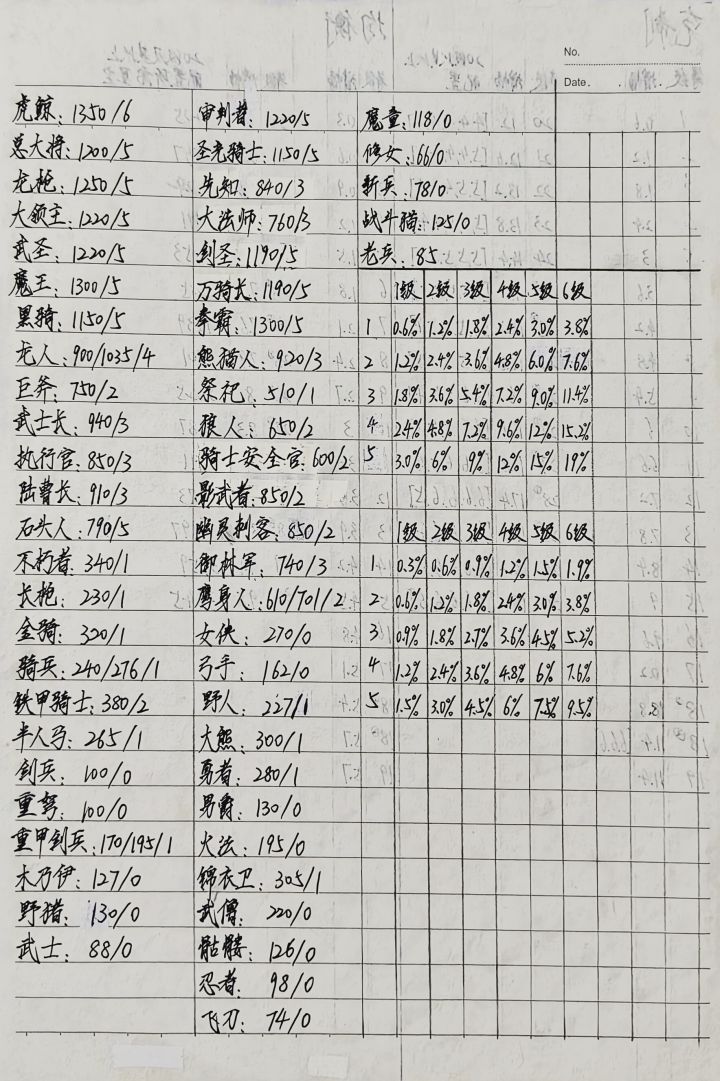 No.
Date.
虎鲸：1350/6 审判者：1220/5 魔童：118/0
总大将：1200/5 圣光骑士：1150/5 修女：66/0
龙枪：1250/5 先知：840/3 新兵：78/0
大领主：1220/5 大法师：760/3 战斗猫：125/0
武圣：1220/5 剑圣：1190/5 老兵：85
魔王：1300/5 万骑长：1190/5 1级 2级 3级 4级 5级 6级
黑骑：1150/5 拳霸：1300/5 1 0.6% 1.2% 1.8% 2.4% 3.0% 3.8%
龙人：900/1035/4 熊猫人：920/3 2 1.2% 2.4% 3.6% 4.8% 6.0% 7.6%
巨斧：750/2 祭祀：510/1 3 1.8% 3.6% 5.4% 7.2% 9.0% 11.4%
武士长：940/3 狼人：650/2 4 2.4% 4.8% 7.2% 9.6% 12% 15.2%
执行官：850/3 骑士安全官：600/2 5 3.0% 6% 9% 12% 15% 19%
陆曹长：910/3 影武者：850/2
石头人：790/5 幽灵刺客：850/2 1级 2级 3级 4级 5级 6级
不朽者：340/1 御林军：740/3 1 0.3% 0.6% 0.9% 1.2% 1.5% 1.9%
长枪：230/1 鹰身人：610/701/2 2 0.6% 1.2% 1.8% 2.4% 3.0% 3.8%
金骑：320/1 女侠：270/0 3 0.9% 1.8% 2.7% 3.6% 4.5% 5.2%
骑兵：240/276/1 弓手：162/0 4 1.2% 2.4% 3.6% 4.8% 6% 7.6%
铁甲骑士：380/2 野人：227/1 5 1.5% 3.0% 4.5% 6% 7.5% 9.5%
半人弓：265/1 大熊：300/1
剑兵：100/0 勇者：280/1
重弩：100/0 男爵：130/0
重甲剑兵：170/195/1 火法：195/0
木乃伊：127/0 锦衣卫：305/1
野猪：130/0 武僧：220/0
武士：88/0 骷髅：126/0
忍者：98/0
飞刀：74/0